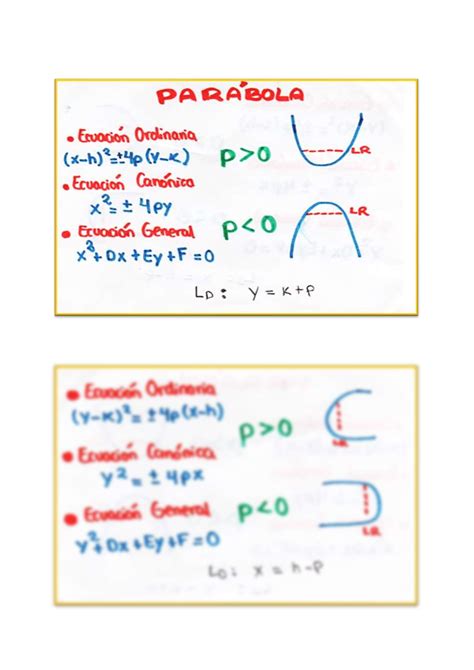 PARÁBOLA
• Ecuación Ordinaria
(x-h)²=±4p(y-k)
p>0
LR
• Ecuación Canónica
x²=±4py
p<0
LR
• Ecuación General
x²+Dx+Ey+F=0
LD: y=k+p
• Ecuación Ordinaria
(y-k)²=±4p(x-h)
p>0
LR
• Ecuación Canónica
y²=±4px
• Ecuación General
p<0
LR
y²+Dx+Ey+F=0
LD: x=h-p